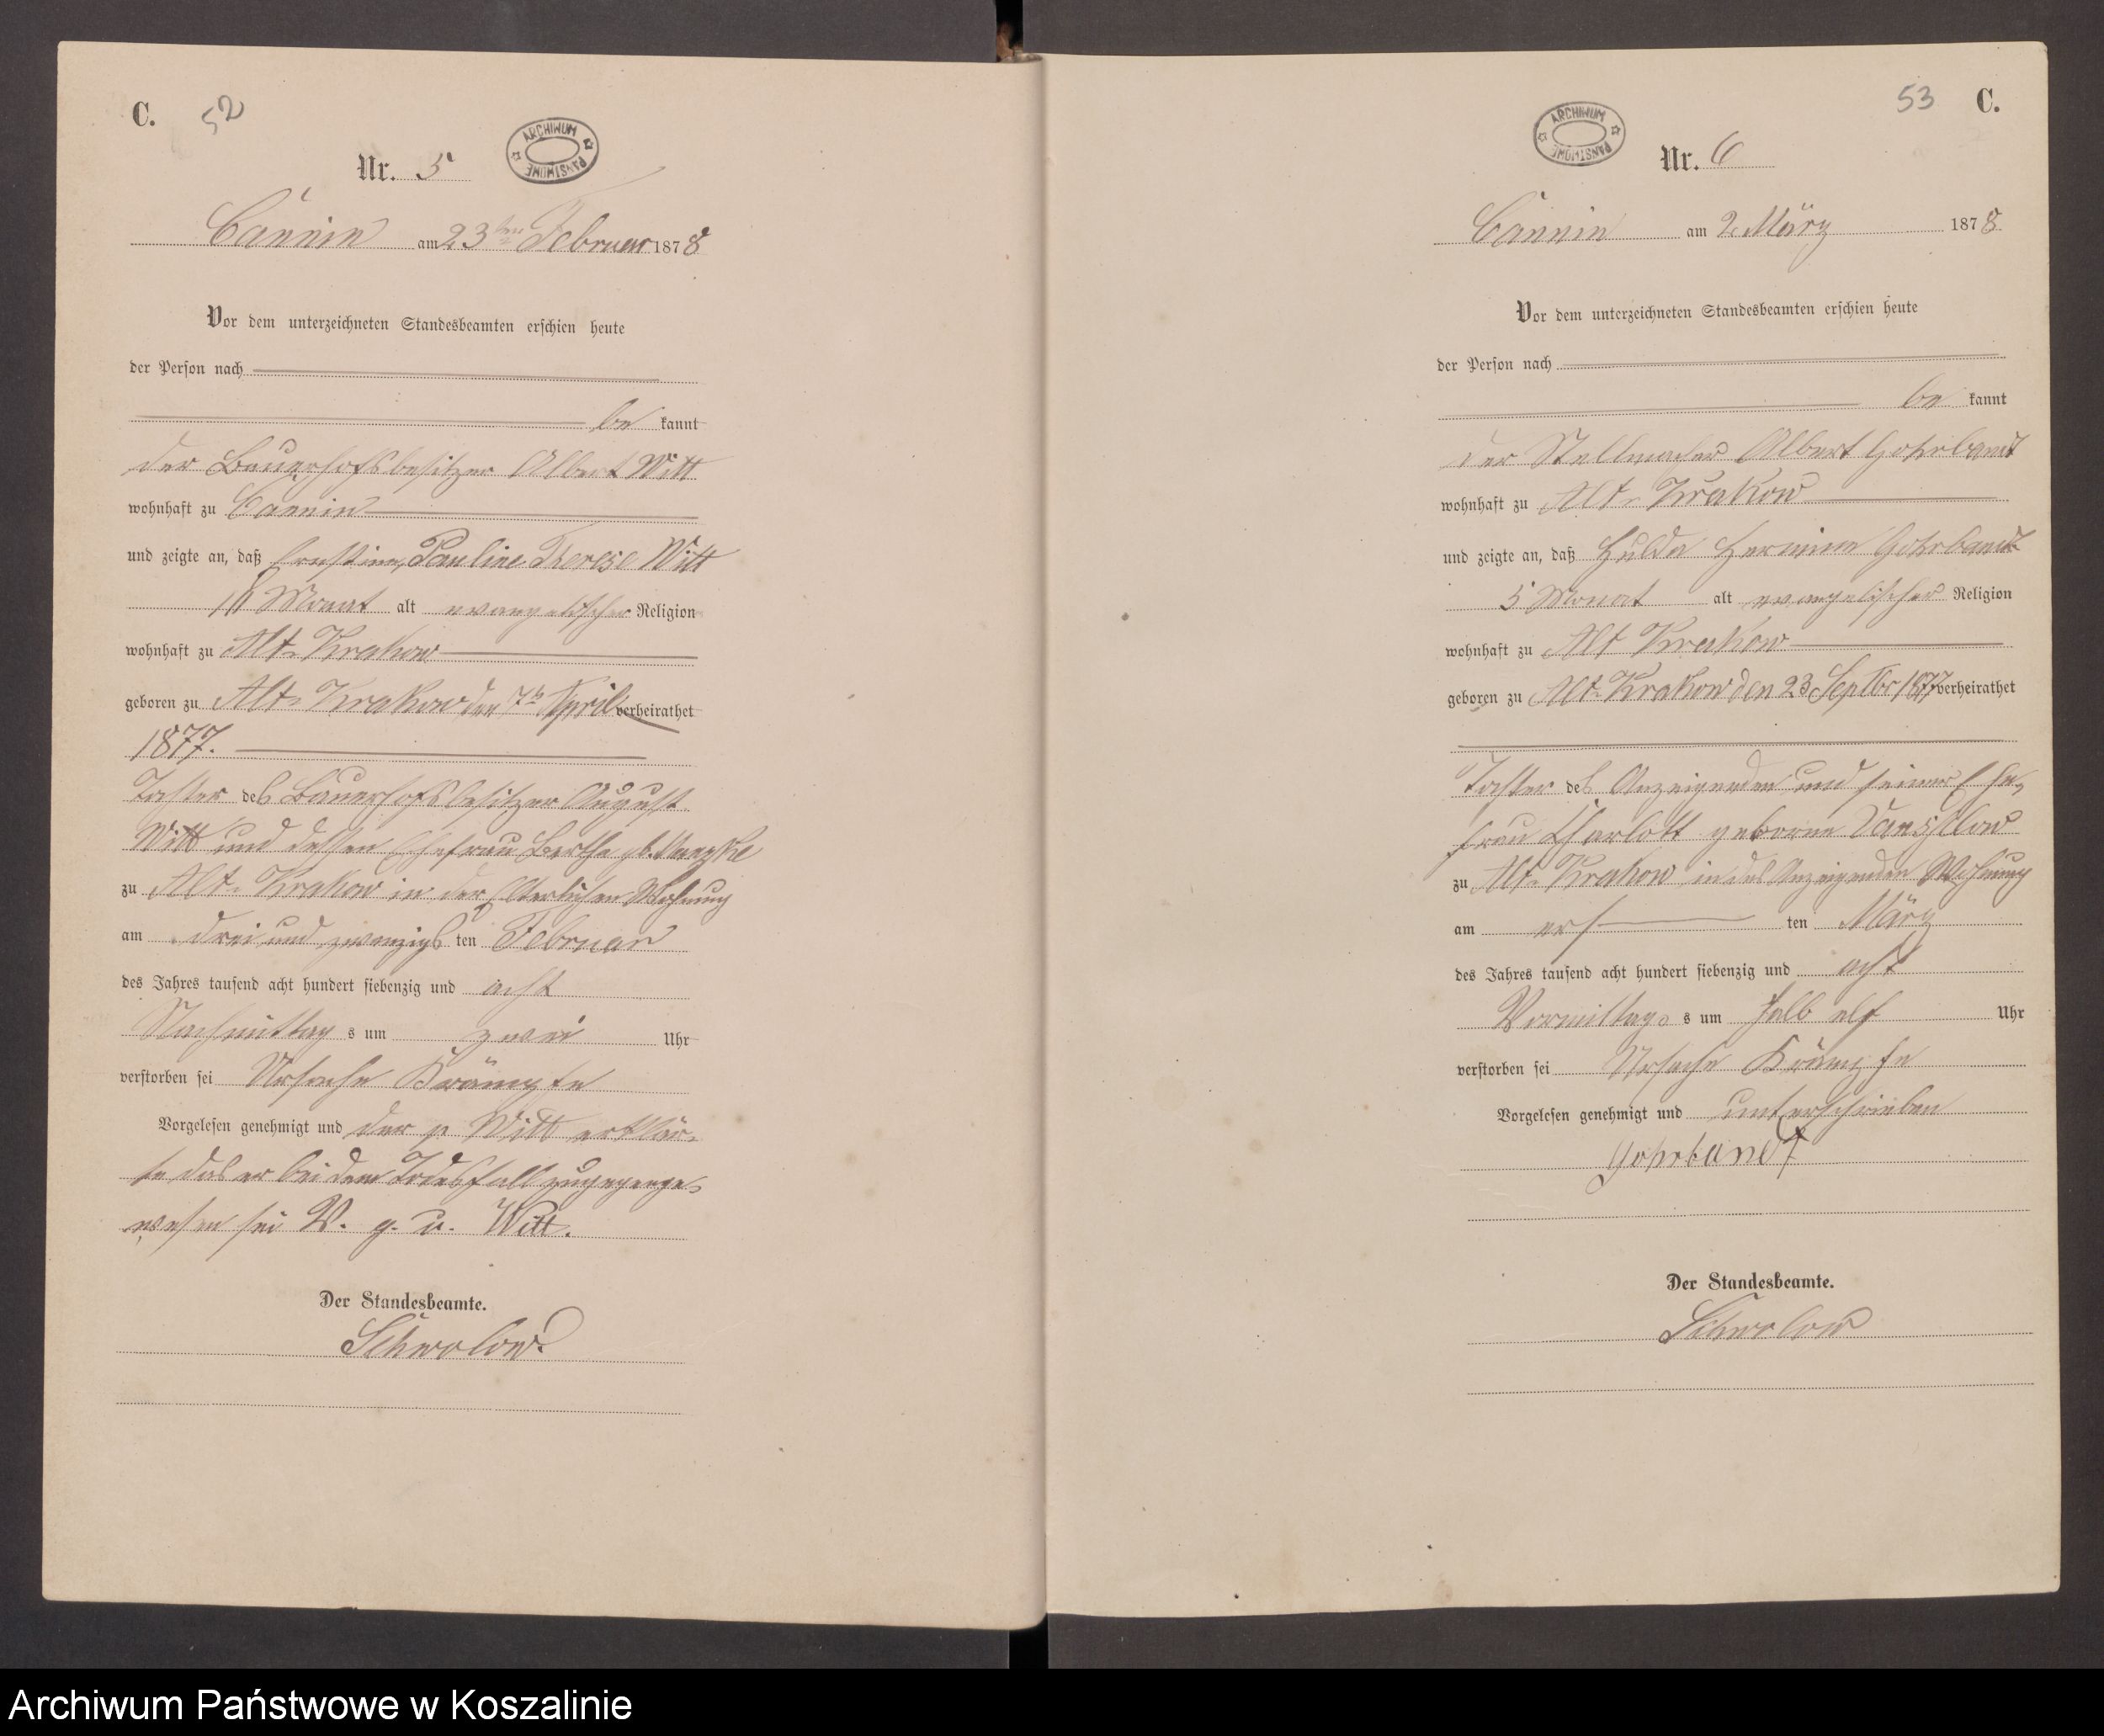 C. 52
ARCHIWUM PAŃSTWOWE
Nr. 5
Cannin am 23ten Februar 1878
Vor dem unterzeichneten Standesbeamten erschien heute
der Person nach
be kannt
der Bauerhofsbesitzer Albert Witt
wohnhaft zu Cannin
und zeigte an, daß Ernstine, Pauline Therese Witt
Monat alt evangelischer Religion
wohnhaft zu Alt-Krakow
geboren zu Alt-Krakow den 7t April verheirathet
1877.
Tochter des Bauerhofsbesitzer August
Witt und dessen Ehefrau Bertha gb.
zu Alt-Krakow in der Elterlichen Wohnung
am drei und zwanzigs ten Februar
des Jahres tausend acht hundert siebenzig und acht
Nachmittag s um zwei Uhr
verstorben sei Ursache Krämpfe
Vorgelesen genehmigt und der p Witt erklär-
te das er bei dem Todesfall zugegenge-
wesen sei V. g. u. Witt.
Der Standesbeamte.
Schwolow
53 C.
ARCHIWUM PAŃSTWOWE
Nr. 6
Cannin am 2 März 1878
Vor dem unterzeichneten Standesbeamten erschien heute
der Person nach
be kannt
der Stellmacher Albert Gohrbandt
wohnhaft zu Alt-Krakow
und zeigte an, daß Hulda Hermine Gohrbandt
5 Monat alt evangelischer Religion
wohnhaft zu Alt Krakow
geboren zu Alt-Krakow den 23 Septbr 1877 verheirathet
Tochter des Anzeigenden und seiner Ehe-
frau Charlott geborne
zu Alt-Krakow in des Anzeigenden Wohnung
am ers ten März
des Jahres tausend acht hundert siebenzig und acht
Vormittags s um halb elf Uhr
verstorben sei Ursache Krämpfe
Vorgelesen genehmigt und unterschrieben
Gohrbandt
Der Standesbeamte.
Schwolow
Archiwum Państwowe w Koszalinie